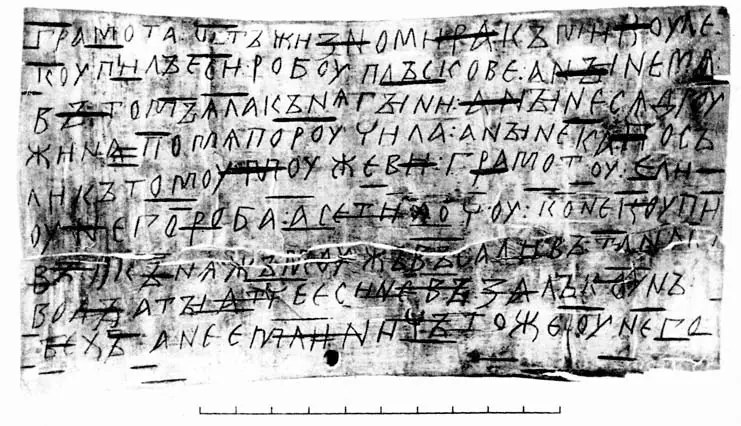 грамота : ѡтъ жизномира къ микоуле :
коупилъ еси : робоу : плъскове : а нꙑне мѧ :
въ томъ ѧла кънѧгꙑни : а нꙑне сѧ дроу
жина по мѧ пороучила : а нꙑне ка посъ
ли къ томоу моужеви : грамотоу : е ли
оу него роба : а се ти хочоу : коне коупи
въ : и кънѧжъ моужъ въсадивъ та на съ
водꙑ : а тꙑ атче еси не възалъ коунъ :
техъ : а не емли ничъто же оу него :